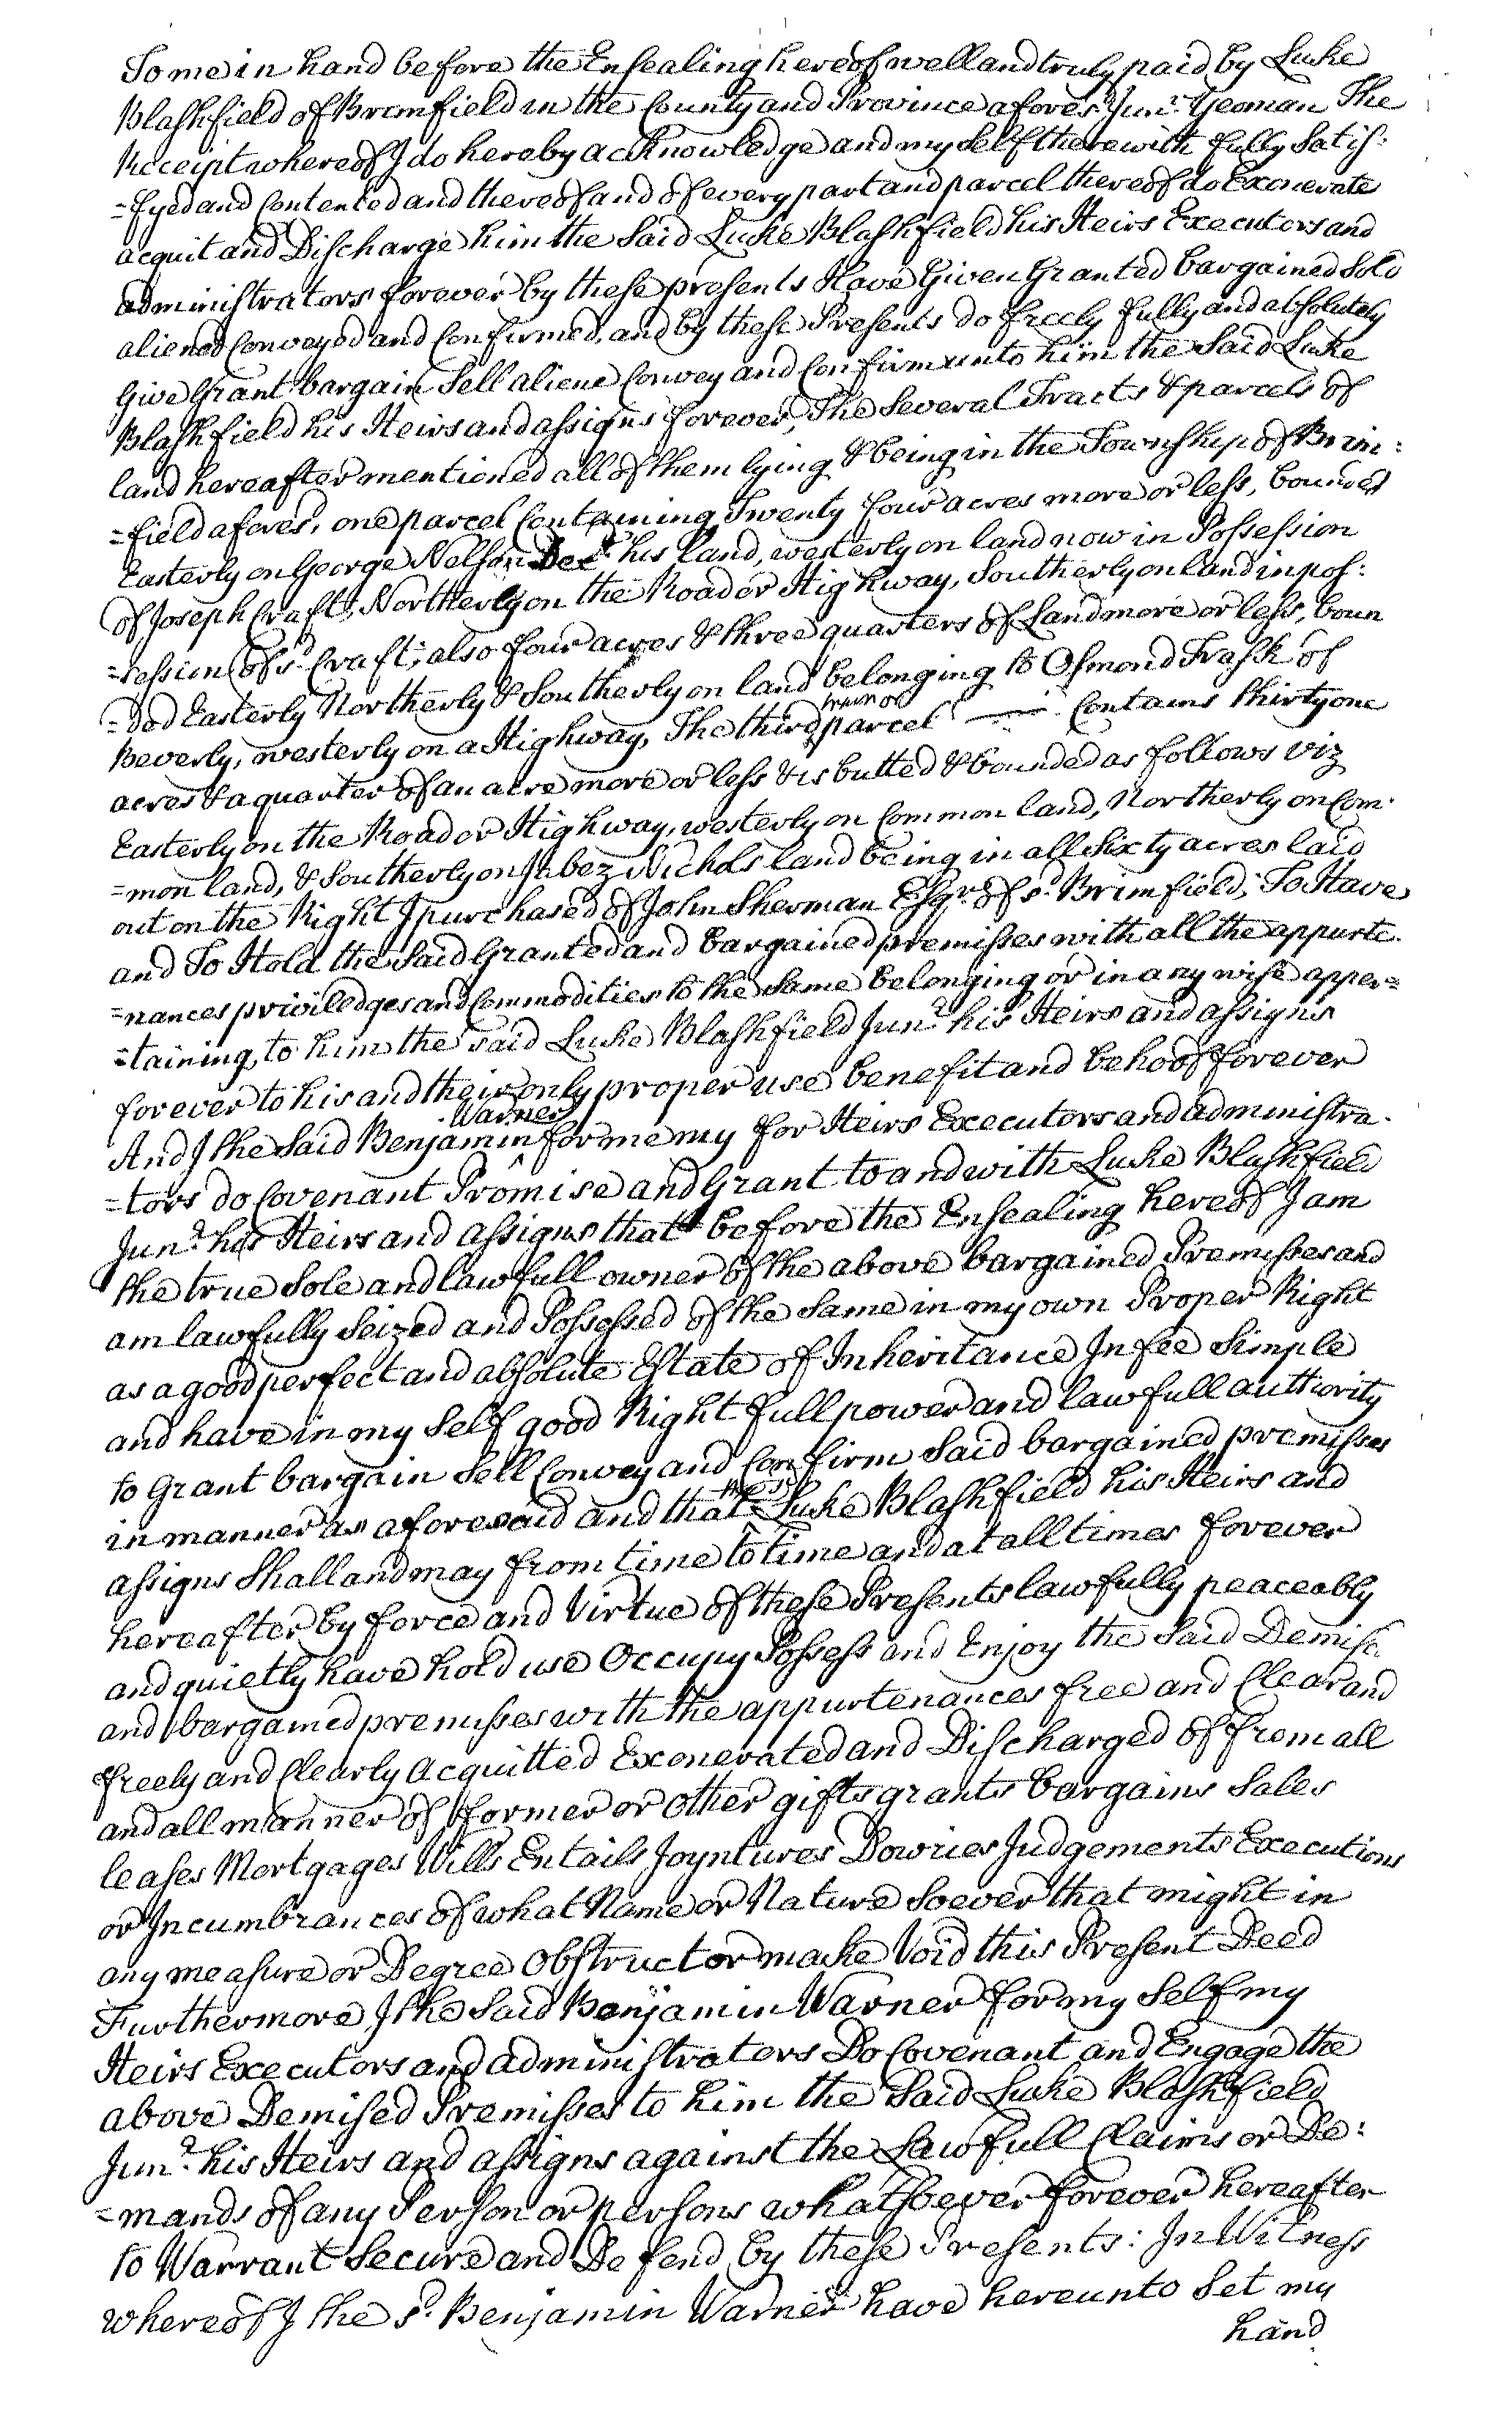 To me in hand before the Ensealing hereof well and truly paid by Luke
Blashfield of Brimfield in the County and Province afores.d Jun.r Yeoman The
Receipt whereof I do hereby acKnowledge and my self therewith fully Satis:
=fyed and Contented and thereof and of every part and parcel thereof do Exonerate
acquit and Discharge him the Said Luke Blashfield his Heirs Executors and
administrators forever by these presents Have Given Granted bargained Sold
aliened Conveyed and Confirmed, and by these Presents do freely fully and absolutely
Give Grant bargain Sell aliene Convey and Confirm unto him the Said Luke
Blashfield his Heirs and assigns forever, The Several Tracts & parcels of
land hereafter mentioned all of them lying & being in the Township of Brim:
=field afores.d, one parcel Containing Twenty four acres more or less, bounded
Easterly on George Nelson Dec.d his land, westerly on land now in Possession
of Joseph Craft, Northerly on the Road or Highway, Southerly on land in pos:
=session of s.d Craft; also four acres & three quarters of Land more or less, boun
=ded Easterly Northerly & Southerly on land belonging to Osmond Trask of
Beverly, westerly on a Highway, The third parcel Contains thirty one
acres & a quarter of an acre more or less & is butted & bounded as follows viz
Easterly on the Road or Highway, westerly on Common land, Northerly on Com:
=mon land, & Southerly on Jabez Nichols land being in all Sixty acres laid
out on the Right I purchased of John Sherman Esq.r of s.d Brimfield; To Have
and To Hold the Said Granted and bargained premisses with all the appurte:
=nances priviledges and Commodities to the Same belonging or in any wise apper=
=taining, to him the said Luke Blashfield Jun.r his Heirs and assigns
forever to his and their only proper use benefit and behoof forever
And I the Said Benjamin Warner for me my for Heirs Executors and administra:
=tors do Covenant Promise and Grant to and with Luke Blashfield
Jun.r his Heirs and assigns that before the Ensealing hereof I am
the true Sole and lawfull owner of the above bargained Premisses and
am lawfully Seized and Possessed of the Same in my own Proper Right
as a good perfect and absolute Estate of Inheritance In fee Simple
and have in my Self good Right full power and lawfull authority
to Grant bargain Sell Convey and Confirm Said bargained premisses
in manner as aforesaid and that the s.d Luke Blashfield his Heirs and
assigns Shall and may from time to time and at all times forever
hereafter by force and Virtue of these Presents lawfully peaceably
and quietly have hold use Occupy Possess and Enjoy the Said Demis.
and bargained premisses with the appurtenances free and Clear and
freely and Clearly Acquitted Exonerated and Discharged of from all
and all manner of former or other gifts grants bargains Sales
leases Mortgages Wills Entails Joyntures Dowries Judgements Executions
or Incumbrances of what Name or Nature Soever that might in
any measure or Degree Obstruct or make Void this Present Deed
Furthermore I the Said Benjamin Warner for my Self my
Heirs Executors and administrators Do Covenant and Engage the
above Demised Premisses to him the Said Luke Blashfield
Jun.r his Heirs and assigns against the Lawfull Claims or De:
=mands of any Person or persons whatsoever forever hereafter
to Warrant Secure and Defend by these Presents: In Witness
whereof I the s.d Benjamin Warner have hereunto Set my
hand